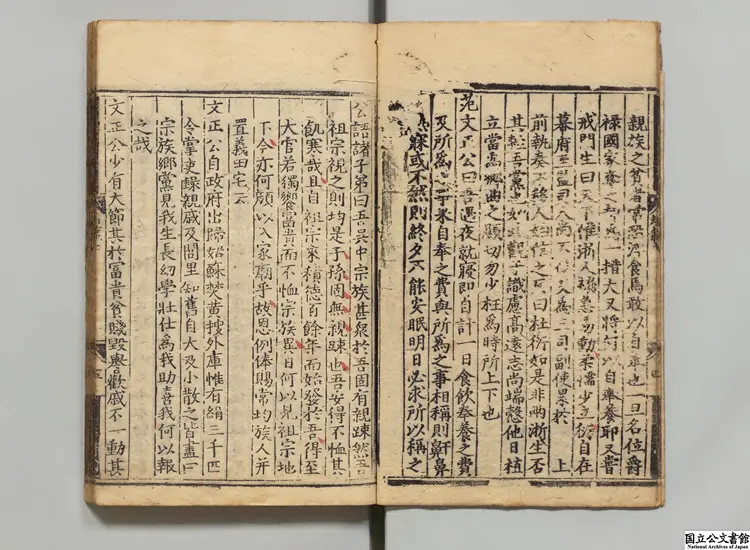 親族之貧者常恐浮食焉敢以自奉也一旦名位爵
祿國家奪之却爲一措大又將何以自奉養耶又嘗
戒門生曰天下惟浙人褊急易動柔懦少立衍自在
幕府至監司人尚不信及爲三司副使累於 上
前執奏不移人始信之反曰杜衍如是非兩浙生否
其輕吾黨也如此觀子識慮高遠志尚端慤他日植
立當爲鄉曲之顯切勿少枉爲時所上下也
范文正公曰吾遇夜就寢即自計一日食飲奉養之費
及所爲之事果自奉之費與所爲之事相稱則鼾鼻
寐或不然則終夕不能安眠明日必求所以稱之
公語諸子弟曰吾吳中宗族甚衆於吾固有親踈然吾
祖宗視之則均是子孫固無親踈也吾安得不恤其
飢寒哉且自祖宗來積德百餘年而始發於吾得至
大官若獨饗富貴而不恤宗族異日何以見祖宗地
下今亦何顔以入家廟乎故恩例俸賜常均族人并
置義田宅云
文正公自政府出歸姑蘇焚黄搜外庫惟有絹三千匹
令掌吏錄親戚及閭里知舊自大及小散之皆盡曰
宗族鄉黨見我生長幼學壯仕爲我助喜我何以報
之哉
文正公少有大節其於富貴貧賤毁譽歡戚不一動其
国立公文書館
National Archives of Japan